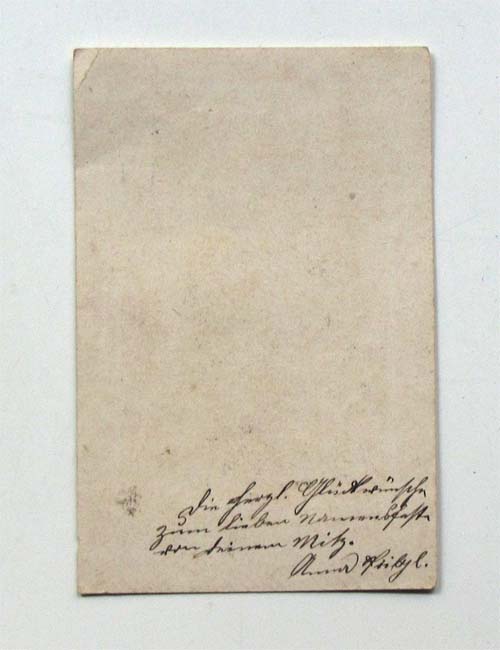 Die herzl. Glückwünsche
zum lieben Namensfeste
von deinem
Anna